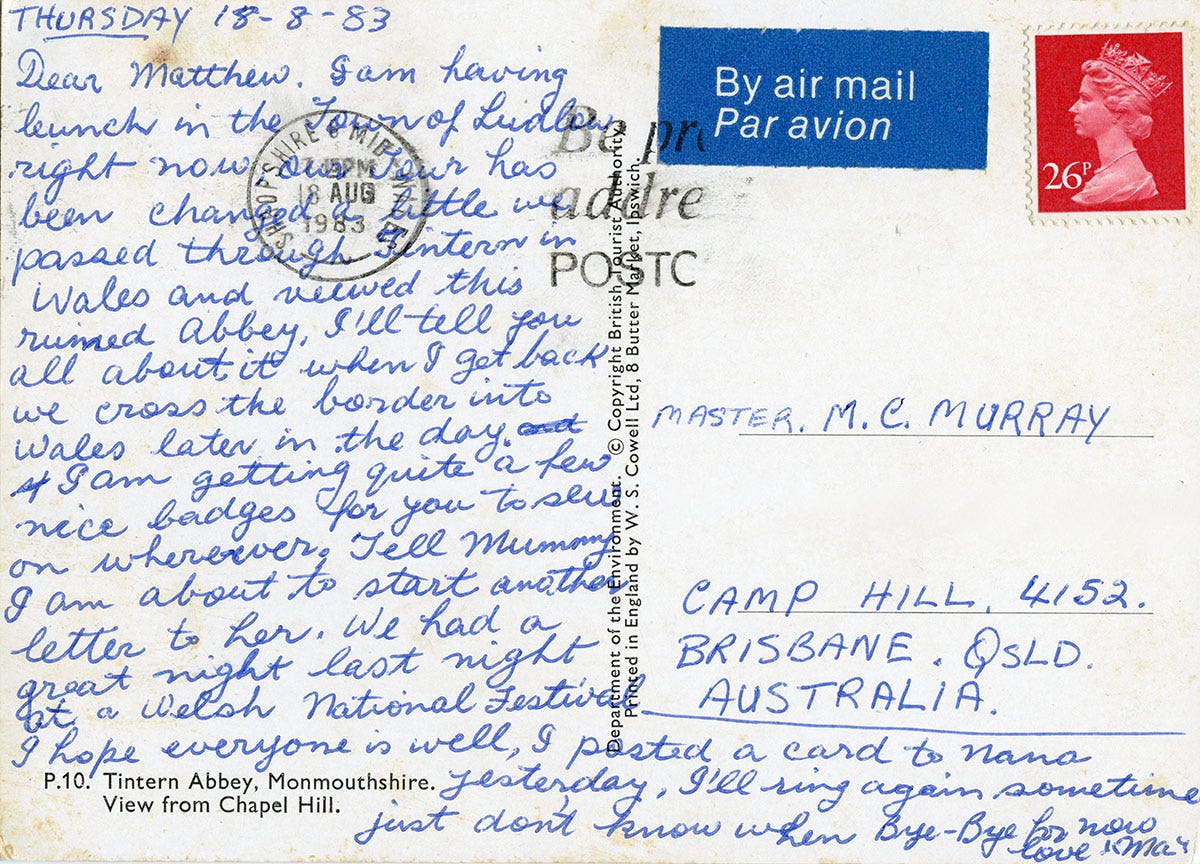 THURSDAY 18-8-83
Dear Matthew. I am having
lunch in the Town of Ludlow
right now our Tour has
been changed a little we
passed through Tintern in
Wales and viewed this
ruined Abbey, I'll tell you
all about it when I get back
we cross the border into
Wales later in the day.
I am getting quite a few
nice badges for you to sew
on wherever. Tell Mummy
I am about to start another
letter to her. We had a
great night last night
at a Welsh National Festival
I hope everyone is well, I posted a card to Nana
yesterday, I'll ring again sometime
just don't know when Bye-Bye for now
love "Ma"
P.10. Tintern Abbey, Monmouthshire.
View from Chapel Hill.
SHROPSHIRE & MID
PM
18 AUG
1983
Be pr
addre
POSTC
Department of the Environment. © Copyright British Tourist Authority.
Printed in England by W. S. Cowell Ltd, 8 Butter Market, Ipswich.
By air mail
Par avion
26P
MASTER. M. C. MURRAY
CAMP HILL. 4152.
BRISBANE. QSLD.
AUSTRALIA.